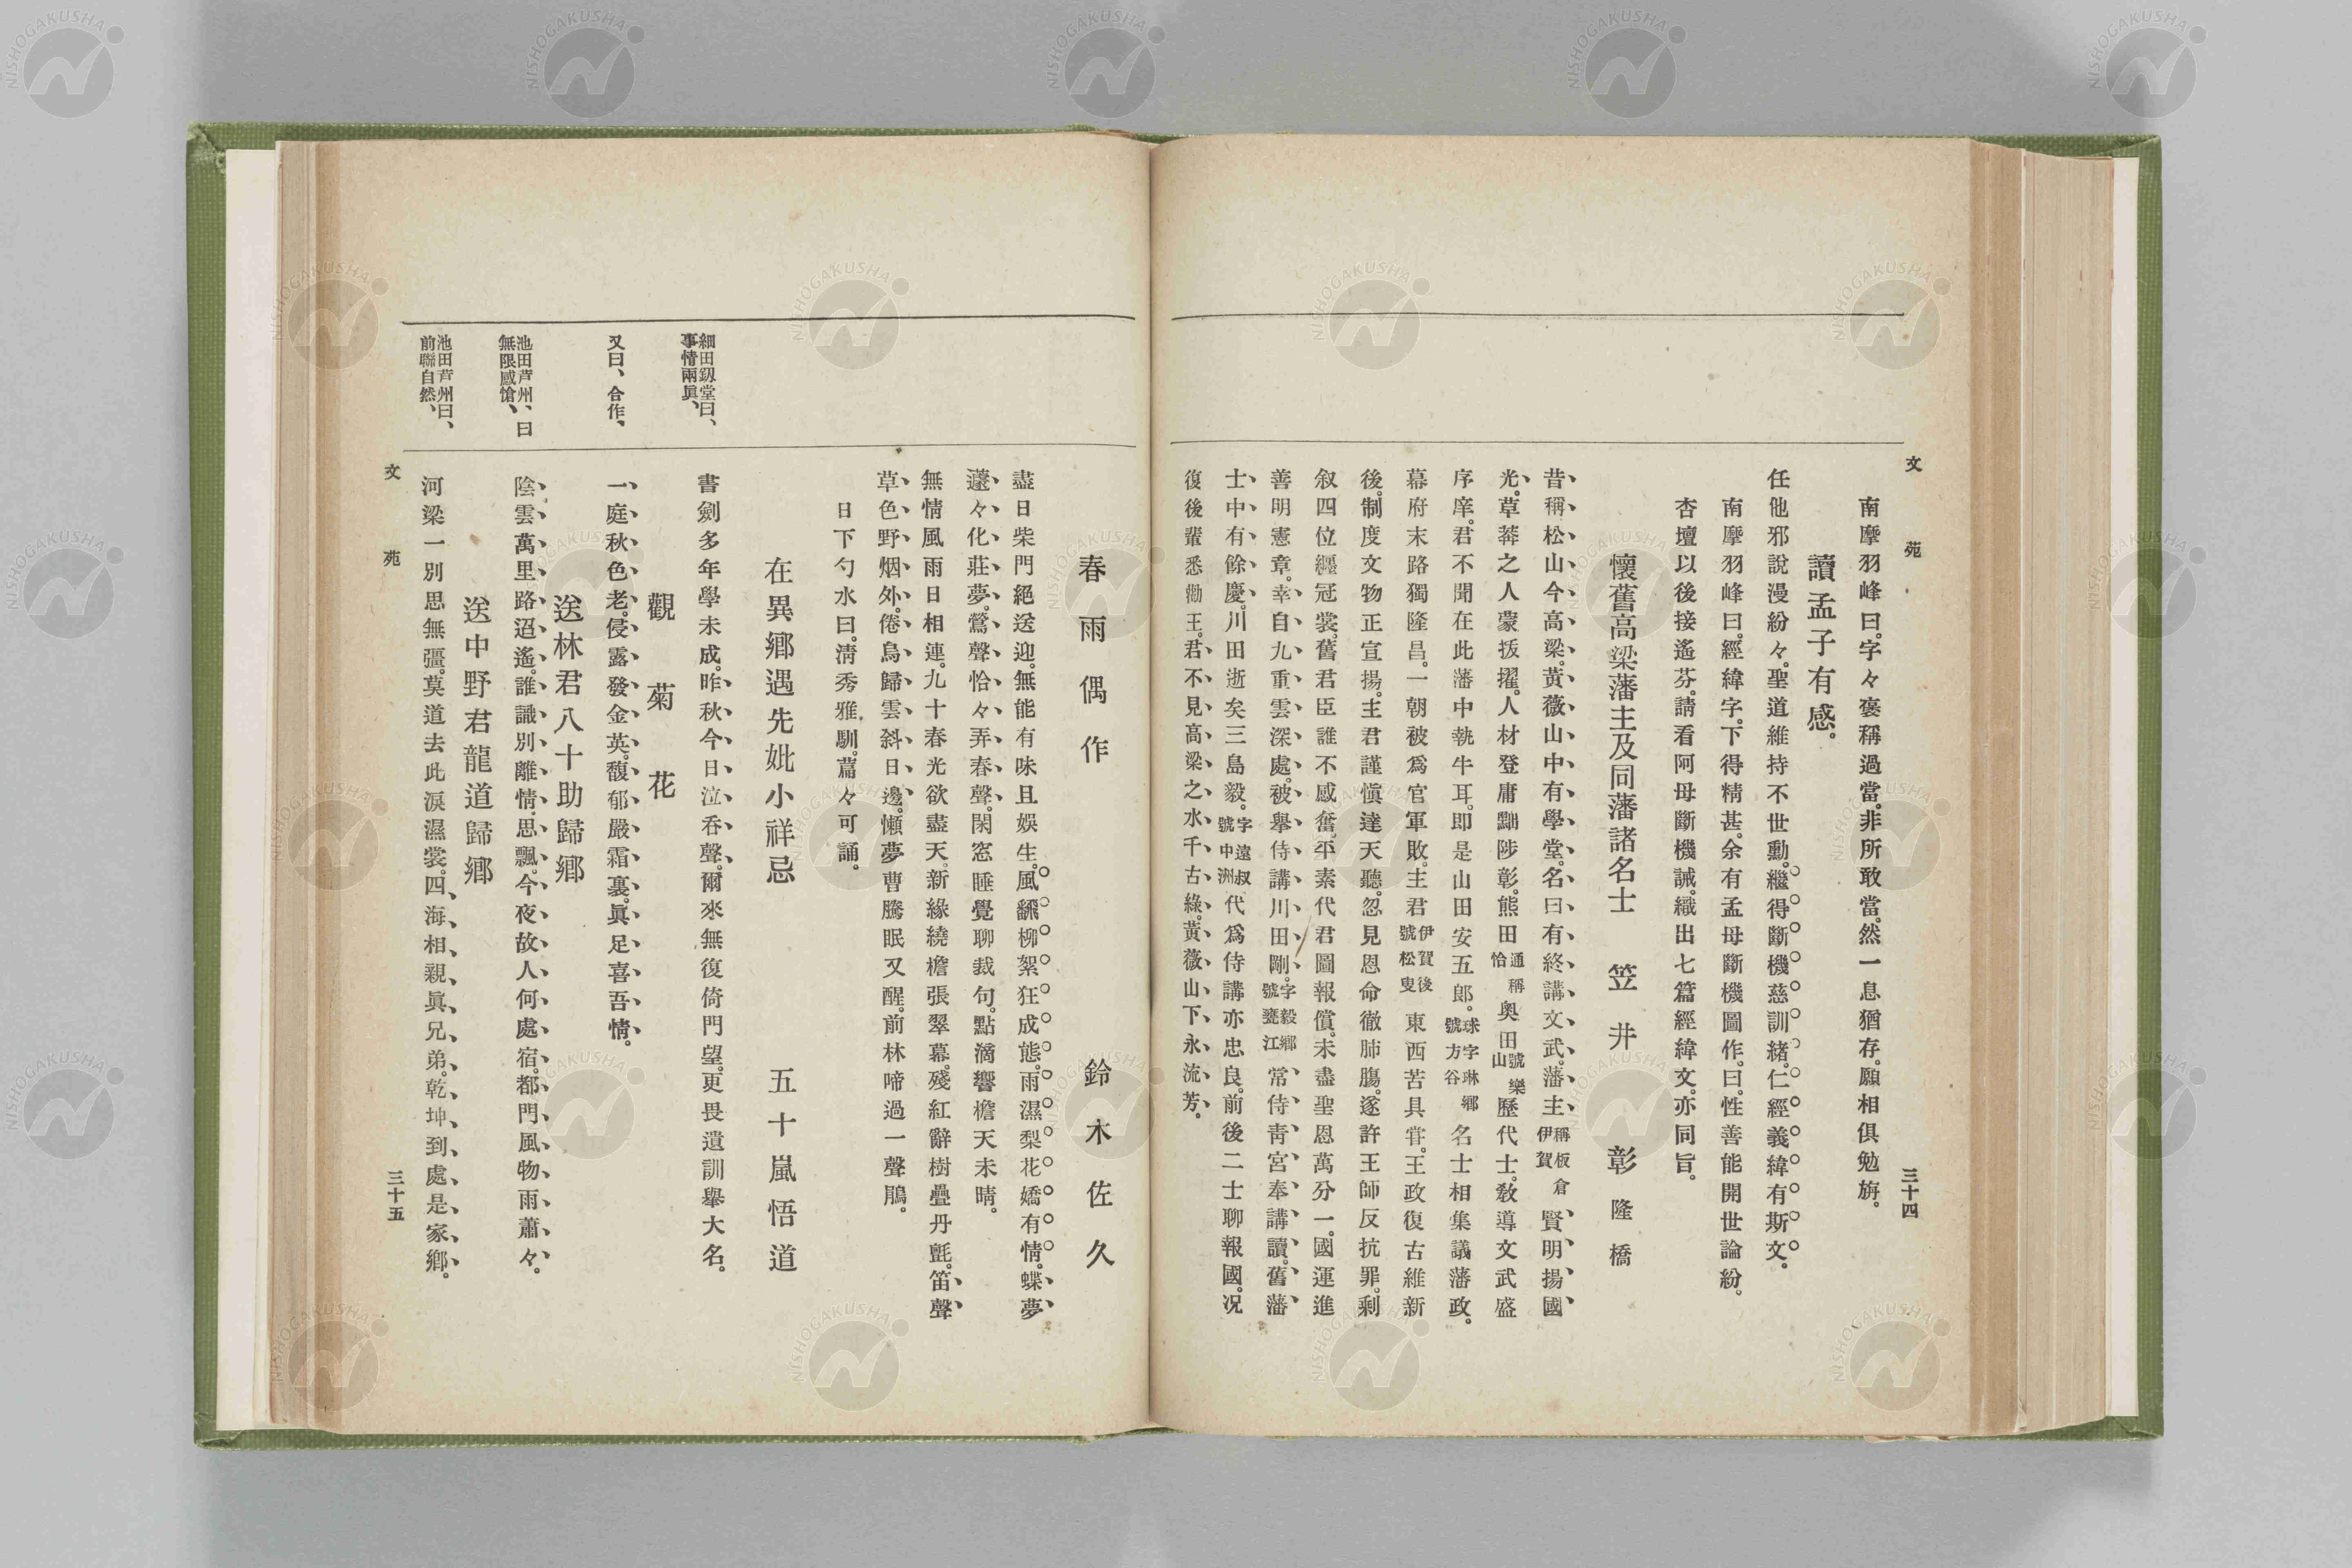 文苑
三十四
南摩羽峰曰。字々褒稱過當。非所敢當。然一息猶存。願相俱勉旃。
讀孟子有感。
任他邪說漫紛々。聖道維持不世勳。繼得斷機慈訓緒。仁經義緯有斯文。
南摩羽峰曰。經緯字。下得精甚。余有孟母斷機圖作。曰。性善能開世論紛。
杏壇以後接遙芬。請看阿母斷機誡。織出七篇經緯文。亦同旨。
懷舊高梁藩主及同藩諸名士 笠井彰 隆橋
昔稱松山今高梁。黃薇山中有學堂。名曰有終講文武。藩主 稱板倉伊賀 賢明揚國
光。草莽之人蒙拔擢。人材登庸黜陟彰。熊田 通稱恰 奧田 號樂山 歷代士。敎導文武盛
序庠。君不聞在此藩中執牛耳。即是山田安五郎。 球字琳鄉號方谷 名士相集議藩政。
幕府末路獨隆昌。一朝被爲官軍敗。主君 伊賀後號松叟 東西苦具甞。王政復古維新
後。制度文物正宣揚。主君謹愼達天聽。忽見恩命徹肺膓。遂許王師反抗罪。剩
叙四位纒冠裳。舊君臣誰不感奮。平素代君圖報償。未盡聖恩萬分一。國運進
善明憲章。幸自九重雲深處。被擧侍講川田剛。 字毅鄉號甕江 常侍靑宮奉講讀。舊藩
士中有餘慶。川田逝矣三島毅。 字遠叔號中洲 代爲侍講亦忠良。前後二士聊報國。况
復後輩悉勤王。君不見高梁之水千古綠。黃薇山下永流芳。
春雨偶作 鈴木佐久
盡日柴門絕送迎。無能有味且娛生。風飜柳絮狂成態。雨濕梨花嬌有情。蝶夢
蘧々化莊夢。鶯聲恰々弄春聲。閑窓睡覺聊裁句。點滴響檐天未晴。
無情風雨日相連。九十春光欲盡天。新綠繞檐張翠幕。殘紅辭樹疊丹氈。笛聲
草色野烟外。倦鳥歸雲斜日邊。懶夢曹騰眠又醒。前林啼過一聲鵑。
日下勺水曰。淸秀雅馴。篇々可誦。
在異鄉遇先妣小祥忌 五十嵐悟道
細田劔堂曰、
事情兩眞、
書劍多年學未成。昨秋今日泣呑聲。爾來無復倚門望。更畏遺訓擧大名。
觀菊花
又曰、合作、
一庭秋色老。侵露發金英。馥郁嚴霜裏。眞足喜吾情。
送林君八十助歸鄉
池田芦州、曰
無限感愴、
陰雲萬里路迢遙。誰識別離情思飄。今夜故人何處宿。都門風物雨蕭々。
送中野君龍道歸鄉
池田芦州曰、
前聯自然、
河梁一別思無彊。莫道去此淚濕裳。四海相親眞兄弟。乾坤到處是家鄉。
文苑
三十五
NISHOGAKUSHA